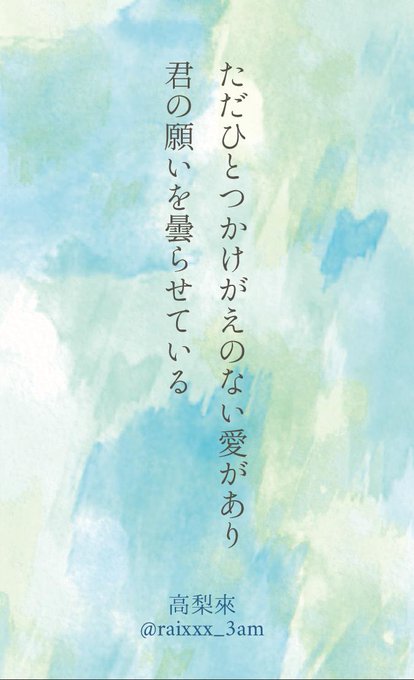 ただひとつかけがえのない愛があり
君の願いを曇らせている
高梨來
@raixxx_3am